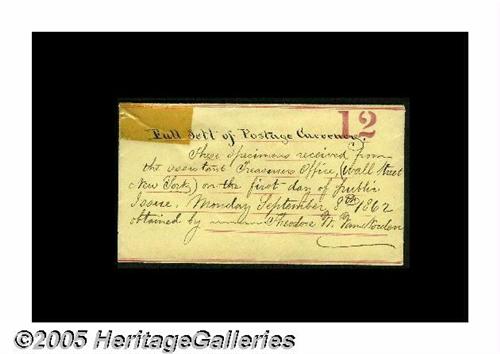 12
Full Sett of Postage Currency.
These specimens received from
the assistant Treasurers Office, (Wall Street
New York) on the first day of public
Issue, Monday September 8th 1862
obtained by Theodore W. Van Norden
©2005 HeritageGalleries